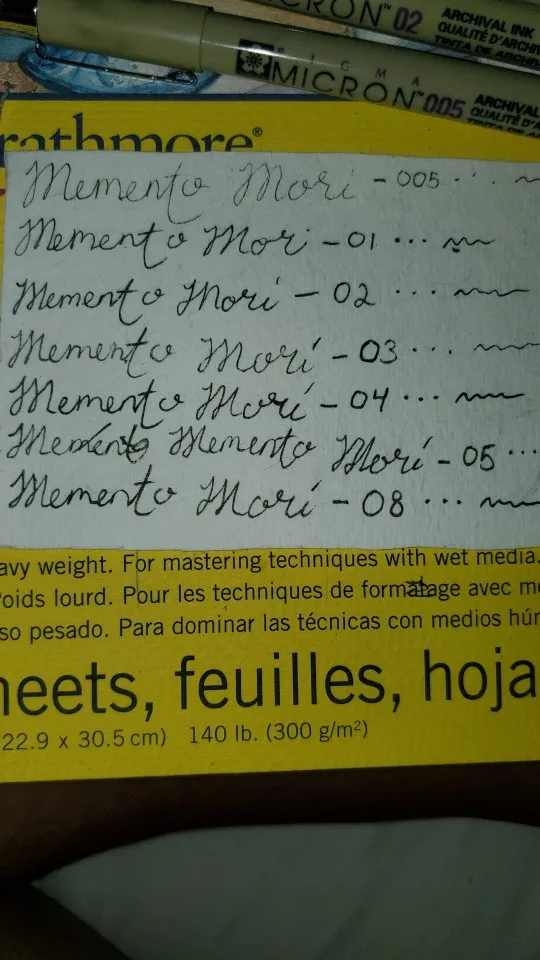 CRON™ 02 ARCHIVAL INK
QUALITÉ D'ARCHIV
TINTA DE ARCHIV
PIGMA
MICRON™ 005 ARCHIVAL
QUALITÉ D'A
TINTA DE
rathmore®
Memento Mori - 005 . . .
Memento Mori - 01 ...
Memento Mori - 02 ...
Memento Mori - 03 ...
Memento Mori - 04 ...
Memento Memento Mori - 05 ...
Memento Mori - 08 ...
avy weight. For mastering techniques with wet media.
Poids lourd. Pour les techniques de formatage avec mé
so pesado. Para dominar las técnicas con medios húm
heets, feuilles, hoja
22.9 x 30.5 cm) 140 lb. (300 g/m²)